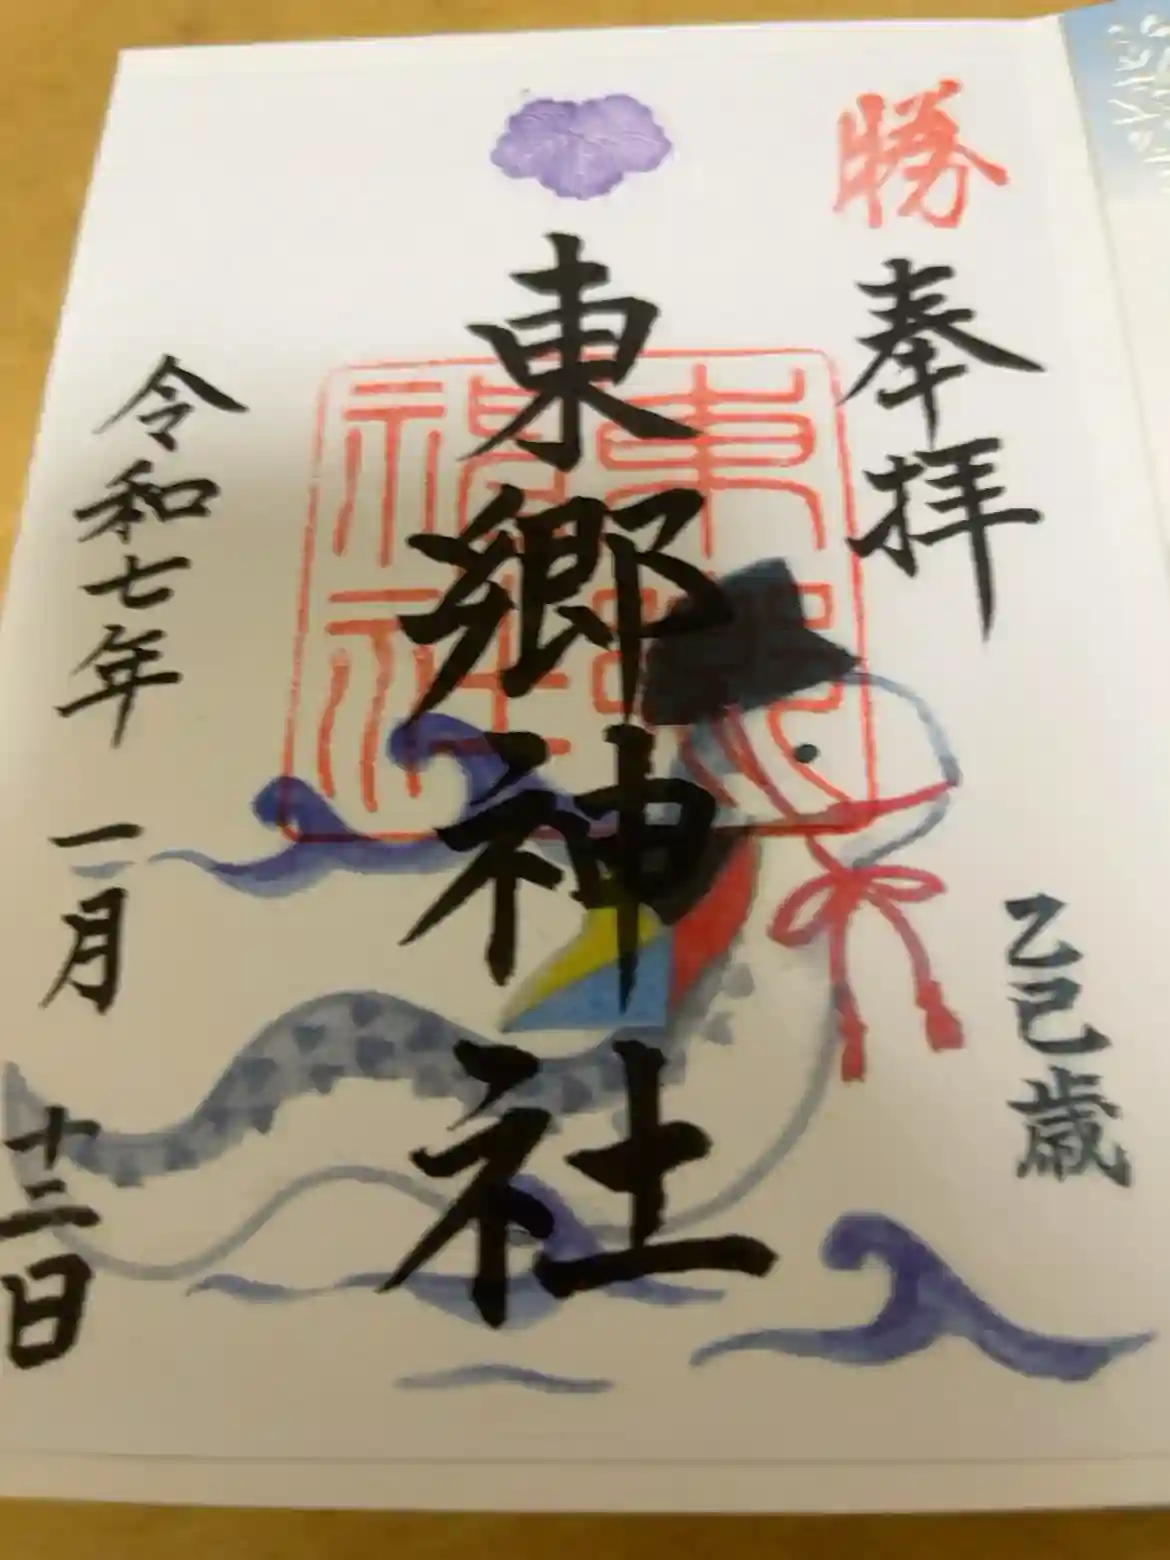 勝
奉拝
乙巳歳
東郷神社
東郷神社
令和七年一月十三日